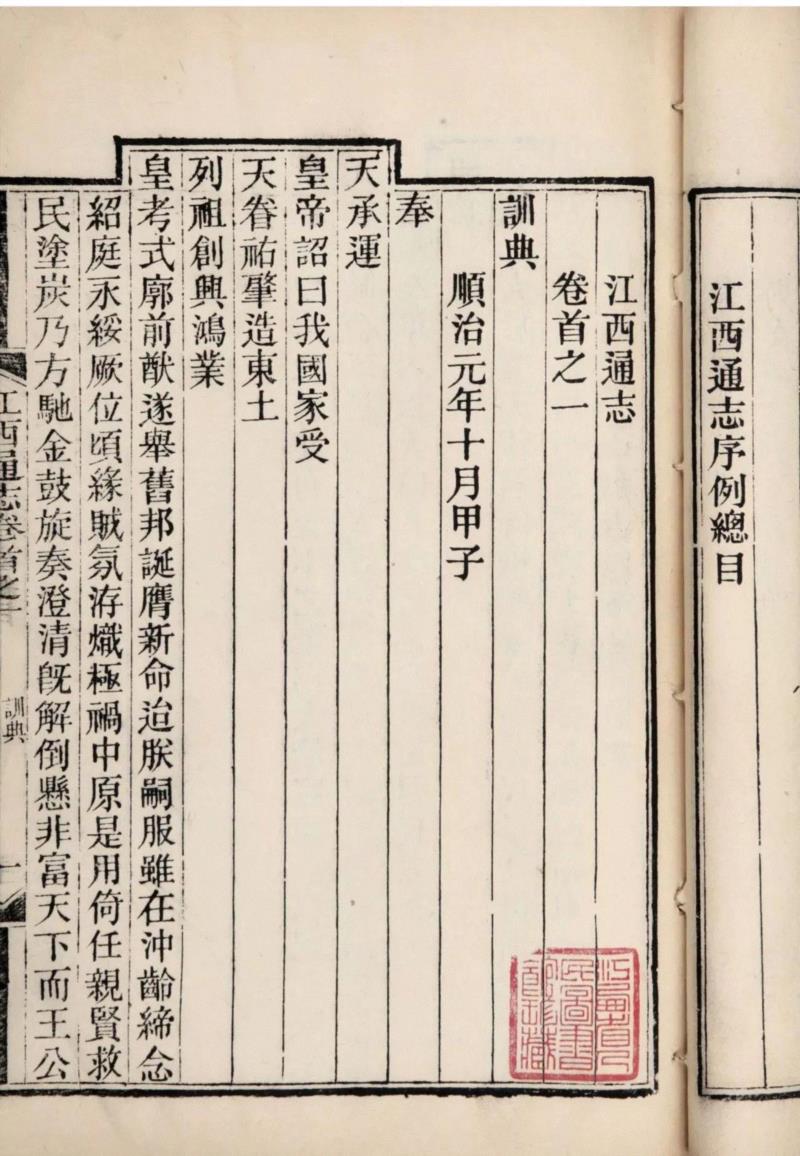 江西通志序例總目
江西通志
卷首之一
訓典
順治元年十月甲子
奉
天承運
皇帝詔曰我國家受
天眷祐肇造東土
列祖創興鴻業
皇考式廓前猷遂舉舊邦誕膺新命迨朕嗣服雖在沖齡締念
紹庭永綏厥位頃緣賊氛洊熾極禍中原是用倚任親賢救
民塗炭乃方馳金鼓旋奏澄清旣解倒懸非富天下而王公
江西通志卷首之一
訓典
一